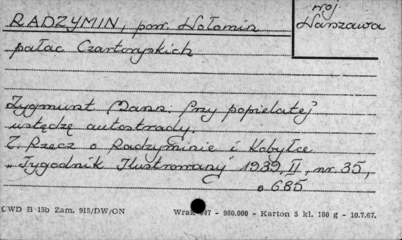 RADZYMIN, pow. Wołomin
woj.
Warszawa
pałac Czartoryskich
Zygmunt Mann: Przy popielatej
wstędze autostrady.
Z. Rzecz o Radzyminie i Kobyłce
„Tygodnik Ilustrowany" 1939, II, nr. 35,
s 685
CWD B 15b Zam. 915/DW/ON
Wrak 547 - 980.000 - Karton 3 kl. 180 g - 10.7.67.